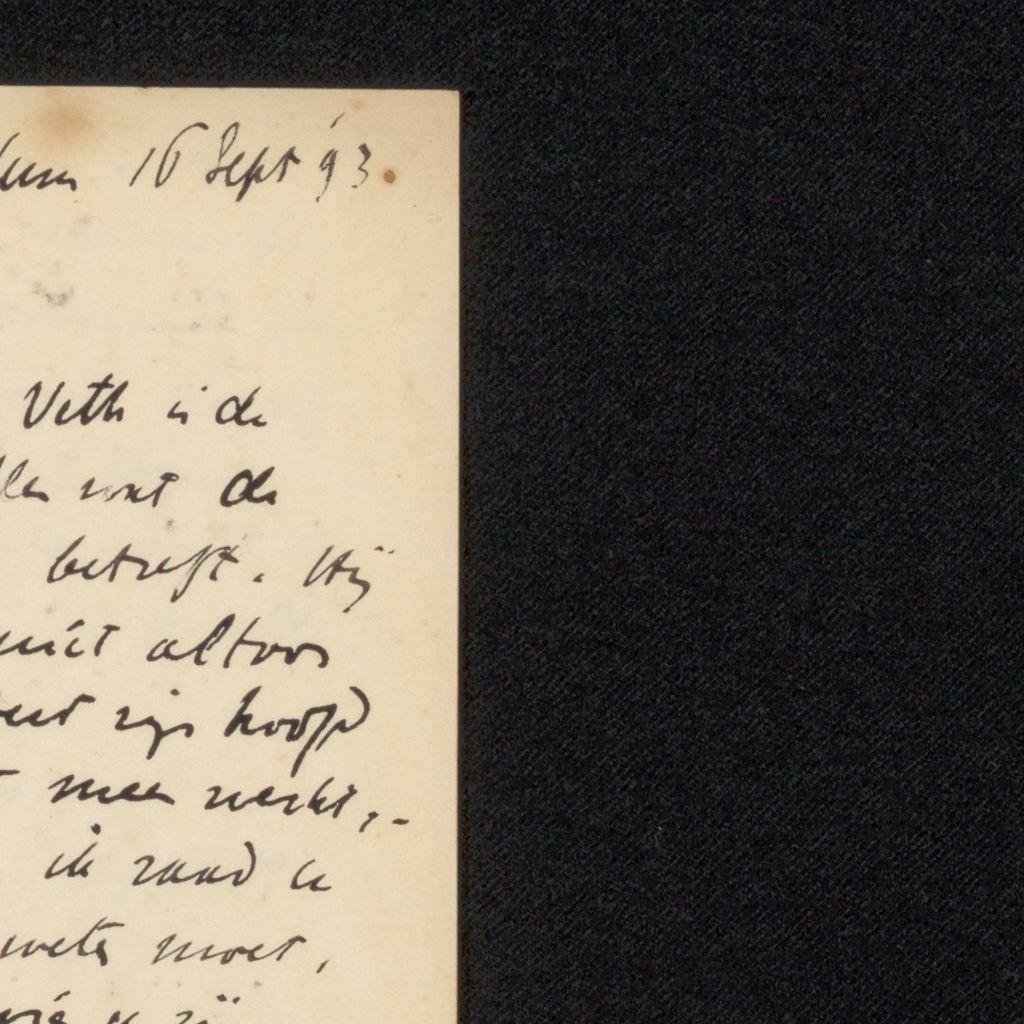 16 Sept '93.
Veth is de
wat de
betreft. Hij
niet altoos
zijn hoofd
mee werkt,-
ik raad u
weten moet,